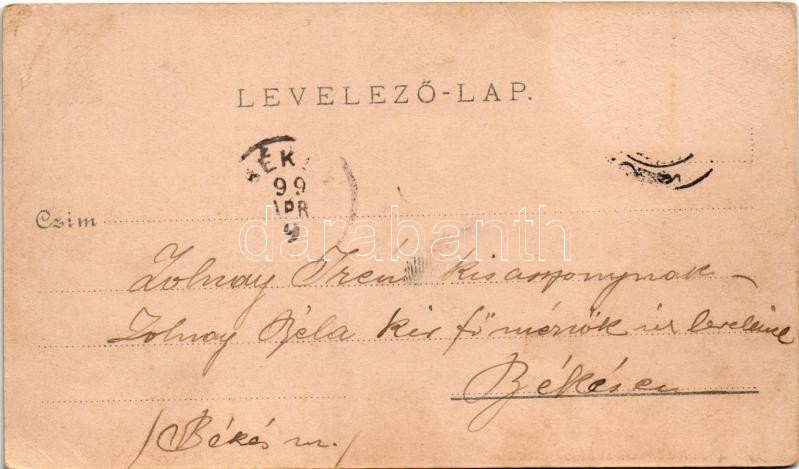 LEVELEZŐ-LAP.
BÉKÉ
99
APR
9
Czim
darabanth
Zolnay Irén kisasszonynak
Zolnay Béla kir főmérnök úr leveleivel
Békésen
/Békés m./